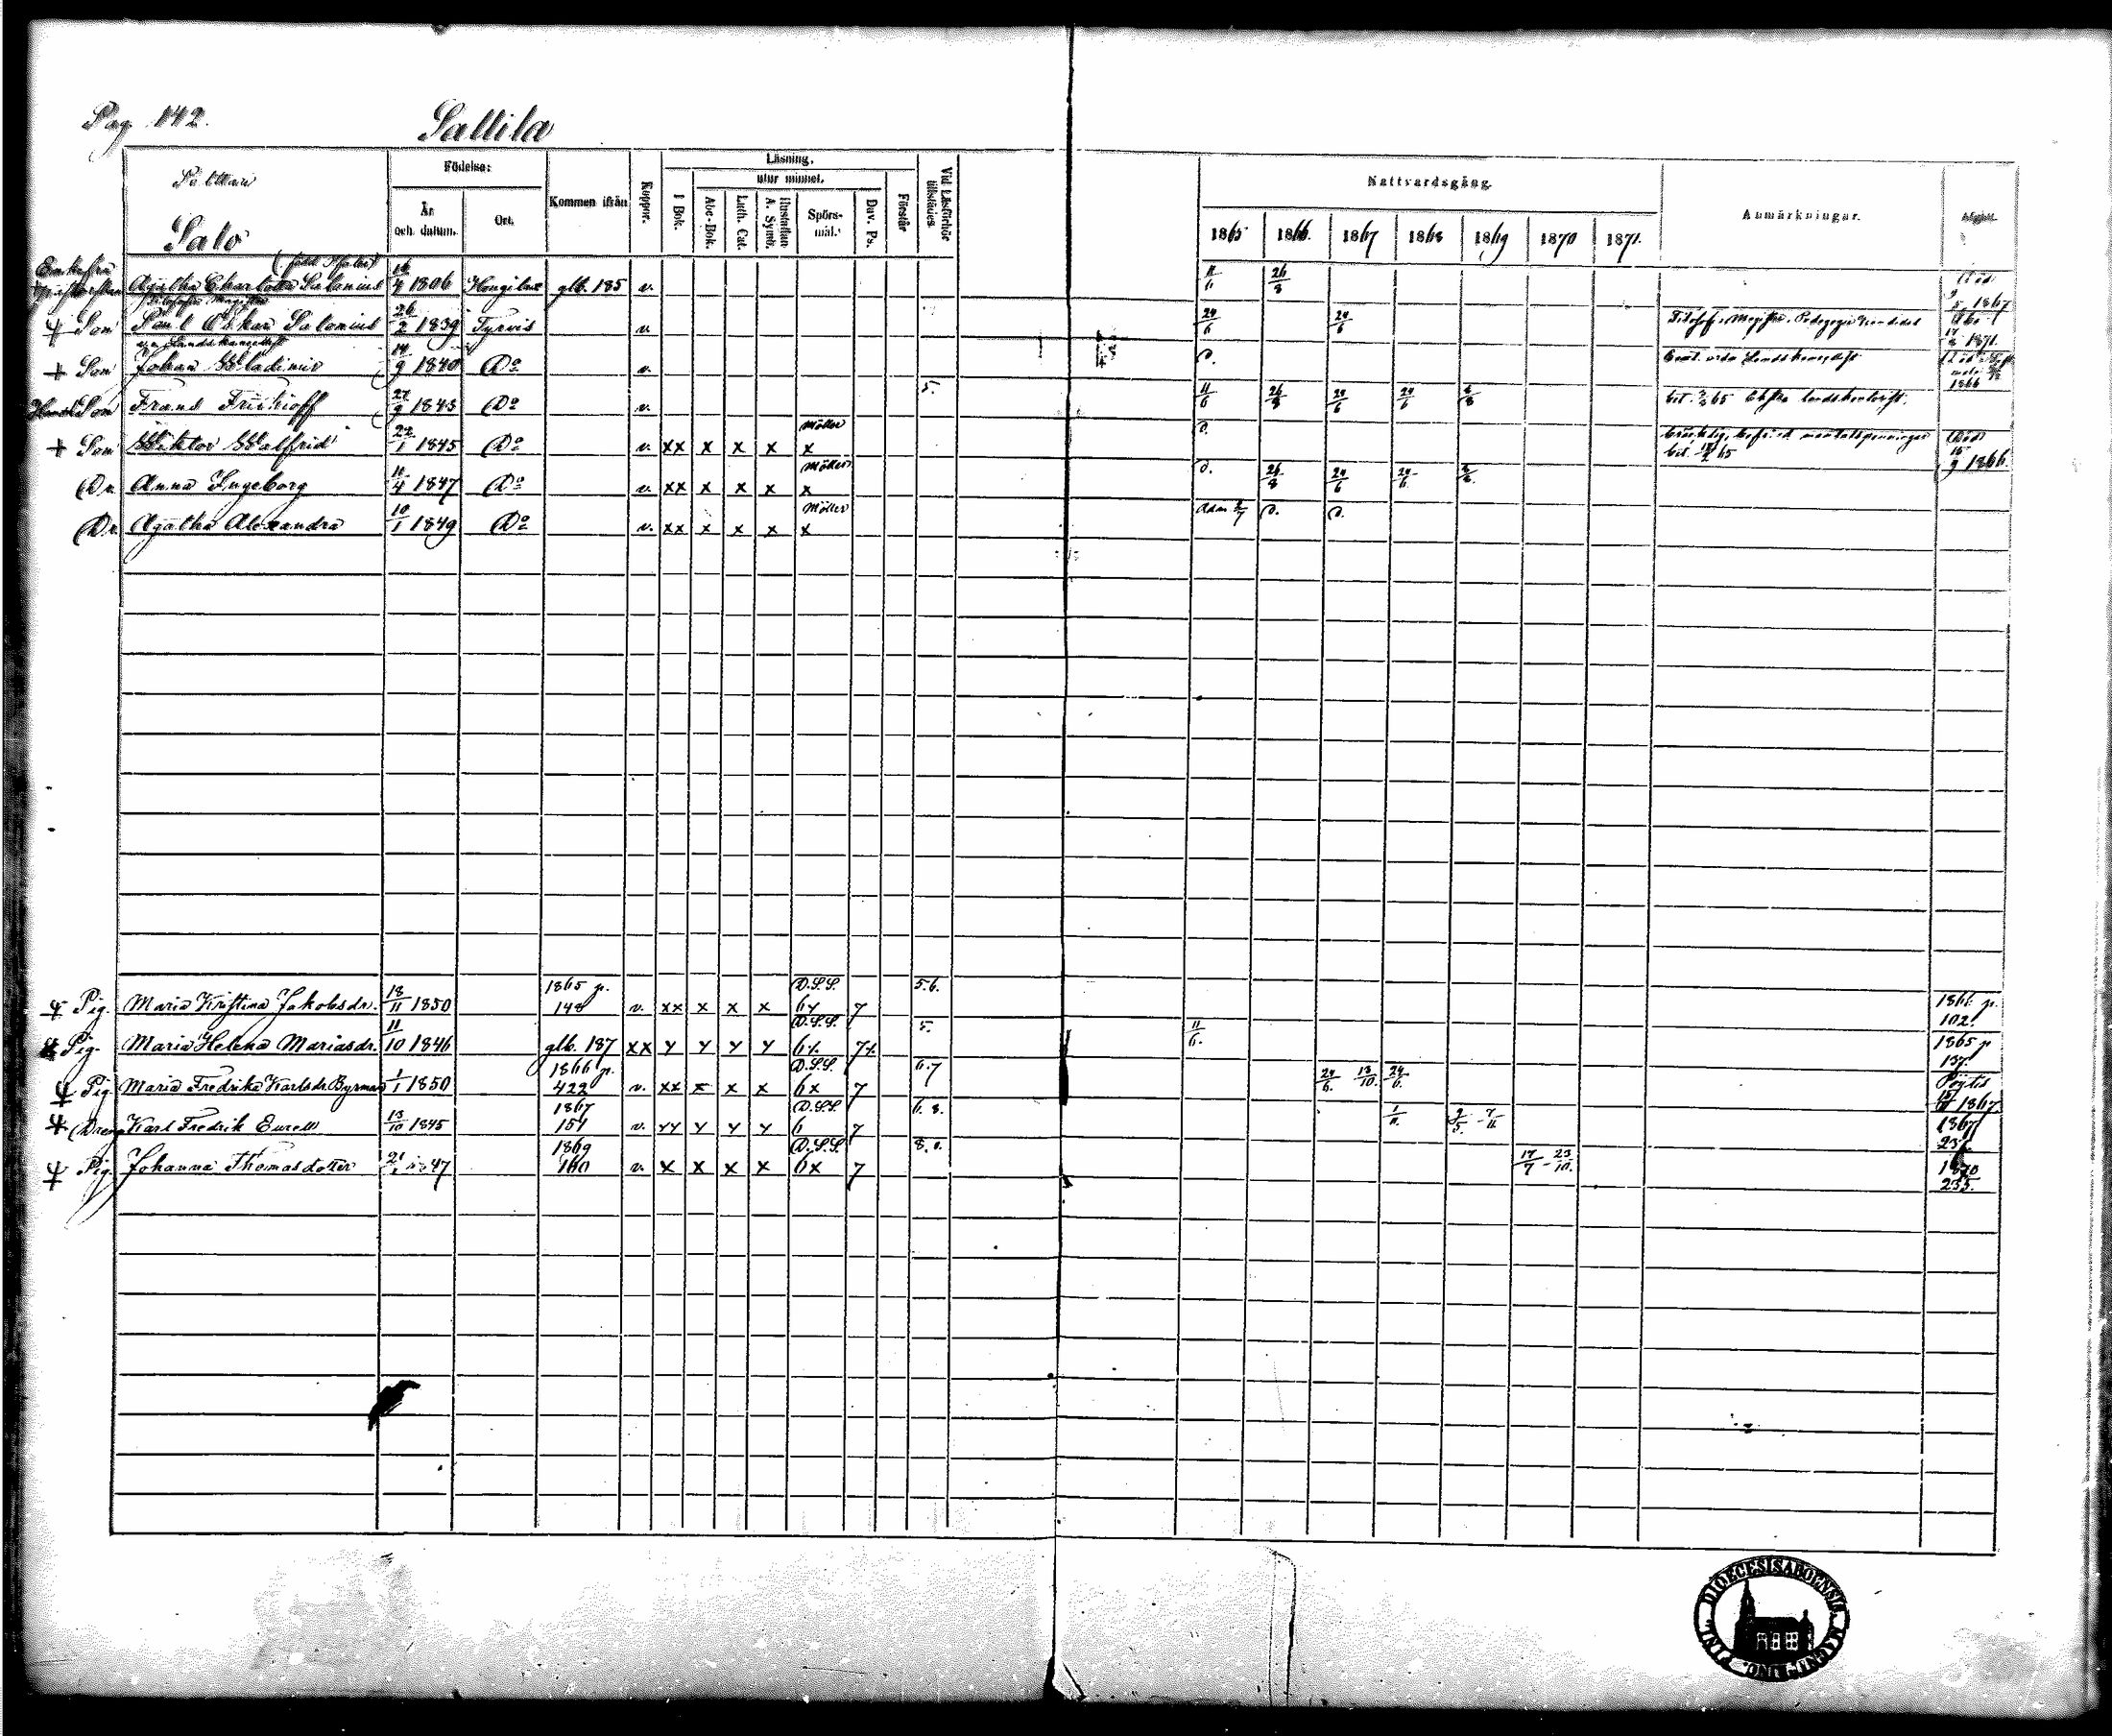 Pag. 142.
Sallila
Födelse:
Kommen ifrån
Koppor.
Läsning.
utur minnet.
I Bok.
Abc-Bok.
Luth. Cat.
Hustaflan A. Symb.
Spörsmål.
Dav. Ps.
Förstår
Vid Läsförhör tillstädes
Nattvardsgång.
Anmärkningar.
År och datum.
Ort.
1865 1866. 1867 1868 1869 1870 1871.
Salo
Enkefru Agatha Charlotta Salonius 16/4 1806 glb. 185 v. 11/6 26/8 Död 9/5 1867
Filosofie Magister
Son Paul Oskar Salonius 26/2 1839 Tyrvis v. 24/6 24/6 Åbo 14/2 1871.
Son Johan Wladimir 14/9 1840 Do v. 1866
Son Frans Frithioff 27/9 1843 Do v. 5. 11/6 26/8 24/6 24/6 6/8
Möller
+ Son Wiktor Walfrid 22/1 1845 Do v. xx x x x x Död 15/9 1866.
Möller
Dr. Anna Ingeborg 11/4 1847 Do v. xx x x x x 26/8 24/6 24/6 6/8
Möller
Dr. Agatha Alexandra 10/1 1849 Do v. xx x x x x Adm. 2/7
Pig. Maria Kristina Jakobsdr. 18/11 1850 1865 p. 148 v. xx x x x D.S.S. 6x 7 5.6. 1866 p. 102.
Pig. Maria Helena Mariasdr. 11/10 1846 glb. 187 xx y y y y D.S.S. 6x. 7x. 5. 11/6. 1865 p 137.
Pig. Maria Fredrika Karlsdr. Byrman 1/1 1850 1866 p. 422 v. xx x x x D.S.S. 6x 7 6.7 24/6. 13/10. 24/6. Pöytis 1867
Dreng Karl Fredrik Eurell 13/10 1845 1867 151 v. yy y y y D.S.S. 6 7 6.8. 2/5. - 7/11 1867
Pig. Johanna Thomasdotter 1847 1869 160 v. x x x x D.S.S. 6x 7 8.0. 17/7 - 23/10. 1870 255.
DIOECESIS ABOENSIS MAGNI DUC. FINL.